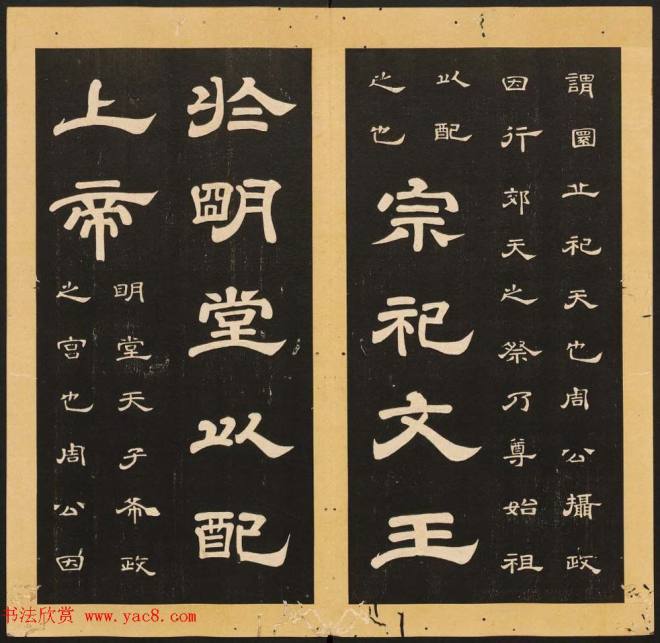 謂圜丘祀天也周公攝政
因行郊天之祭乃尊始祖
以配
之也
宗祀文王
於明堂以配
上帝
明堂天子布政
之宮也周公因
书法欣赏 www.yac8.com